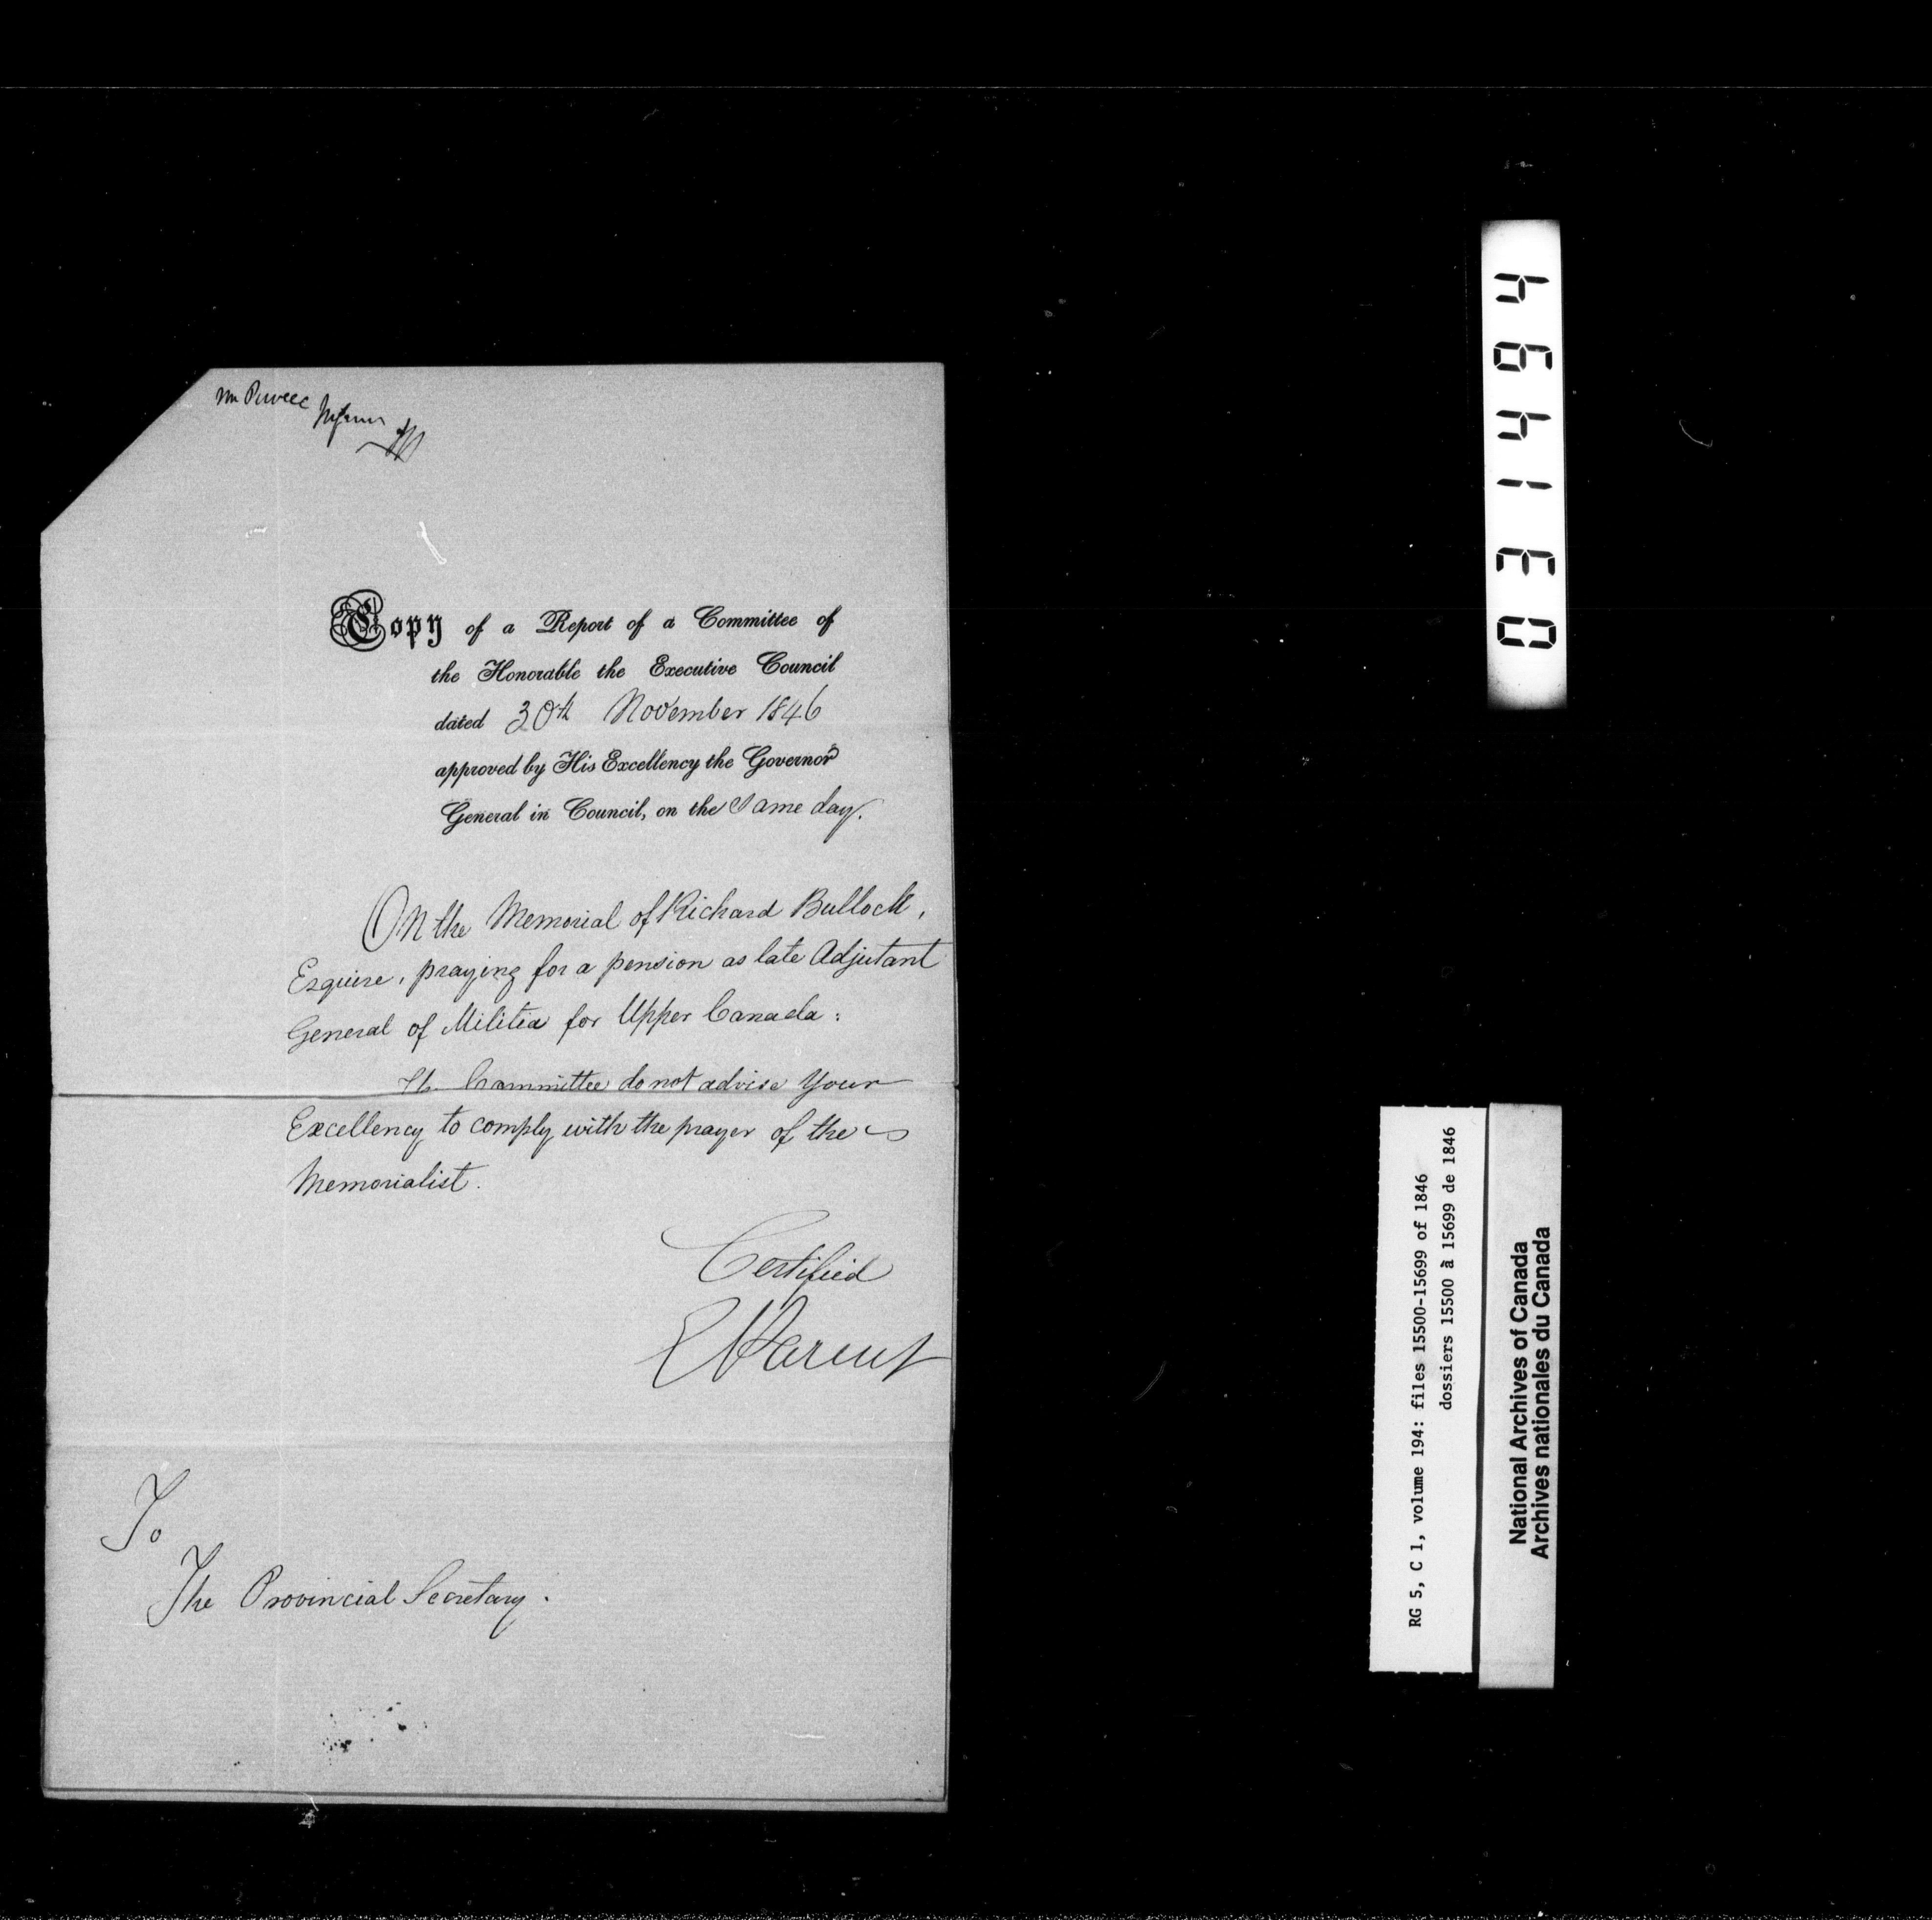 Copy of a Report of a Committee of
the Honorable the Executive Council
dated 30th November 1846
approved by His Excellency the Governor
General in Council, on the Same day.
On the Memorial of Richard Bullock,
Esquire, praying for a pension as late Adjutant
General of Militia for Upper Canada:
The Committee do not advise Your
Excellency to comply with the prayer of the
Memorialist.
Certified
E Parent
To
The Provincial Secretary.
031494
RG 5, C 1, volume 194: files 15500-15699 of 1846
dossiers 15500 à 15699 de 1846
National Archives of Canada
Archives nationales du Canada